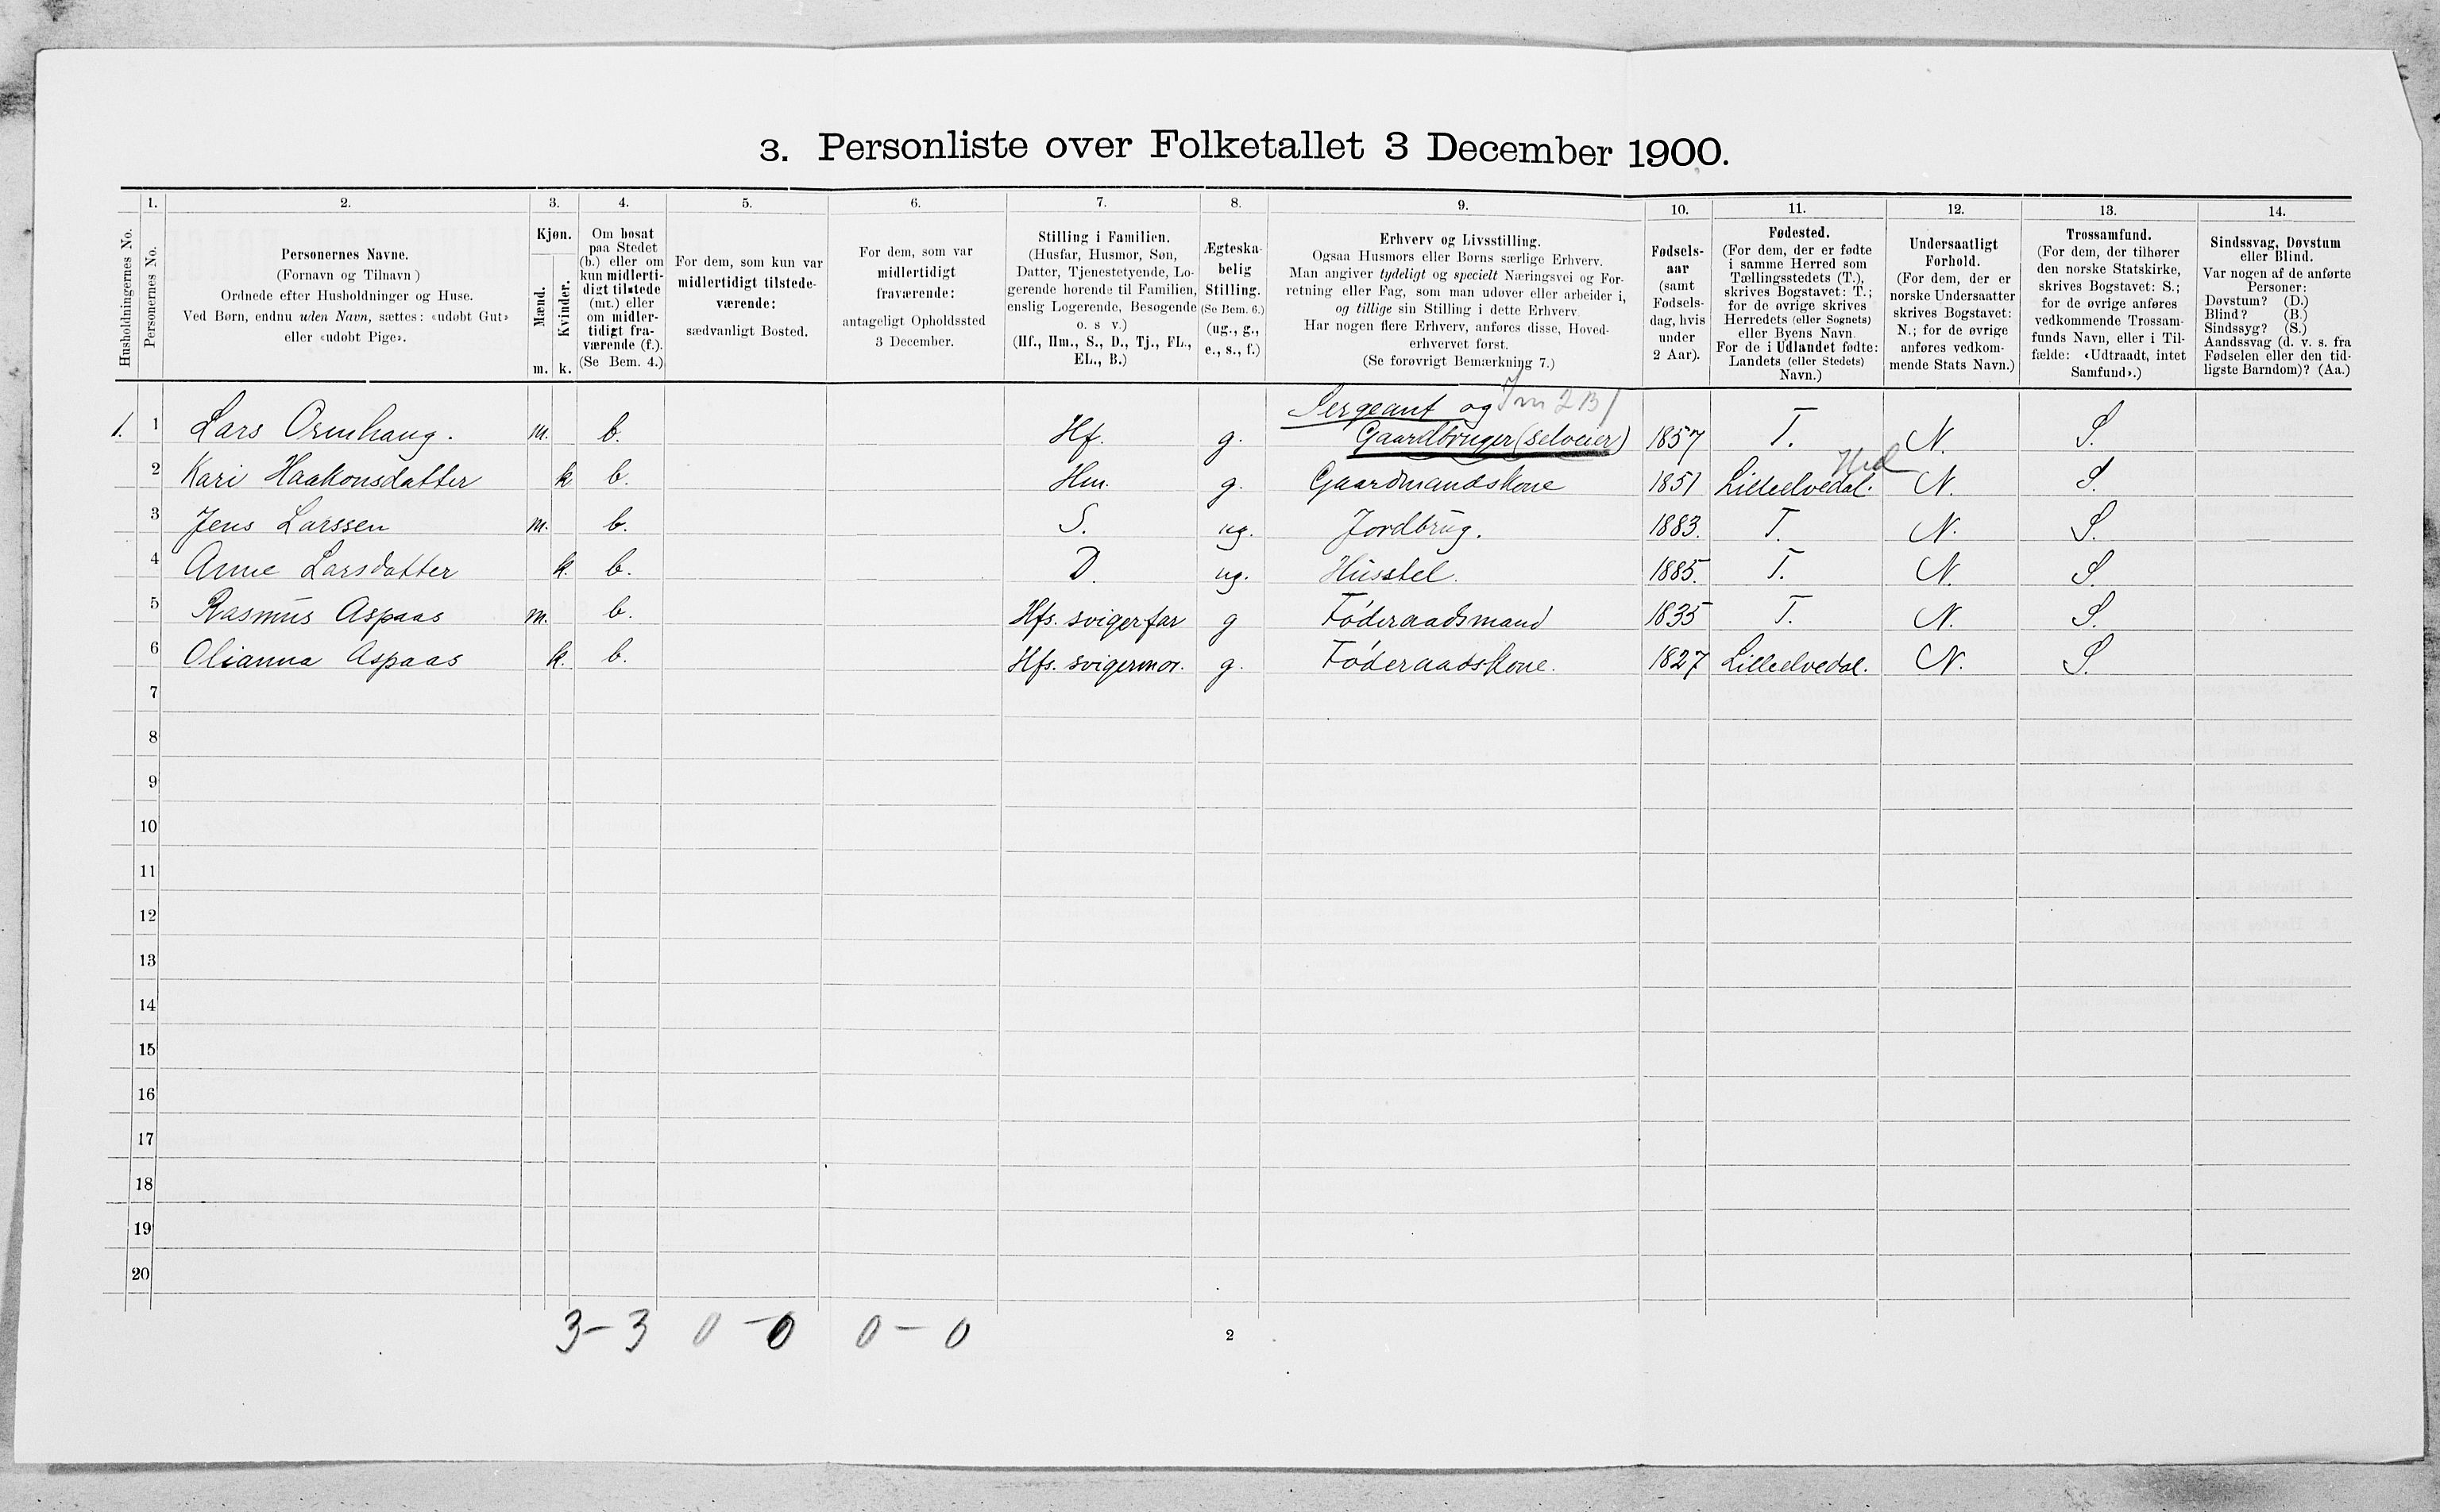 3. Personliste over Folketallet 3 December 1900.
Husholdningernes No.
1.
Personernes No.
2.
Personernes Navne.
(Fornavn og Tilnavn)
Ordnede efter Husholdninger og Huse.
Ved Børn, endnu uden Navn, sættes: «udøbt Gut»
eller «udøbt Pige».
3.
Kjøn.
Mænd.
Kvinder.
m.
k.
4.
Om bosat
paa Stedet
(b.) eller om
kun midlerti-
digt tilstede
(mt.) eller
om midler-
tidigt fra-
værende (f.).
(Se Bem. 4.)
5.
For dem, som kun var
midlertidigt tilstede-
værende:
sædvanligt Bosted.
6.
For dem, som var
midlertidigt
fraværende:
antageligt Opholdssted
3 December.
7.
Stilling i Familien.
(Husfar, Husmor, Søn,
Datter, Tjenestetyende, Lo-
gerende hørende til Familien,
enslig Logerende, Besøgende
o. s v.)
(Hf., Hm., S., D., Tj., FL.,
EL., B.)
8.
Ægteska-
belig
Stilling.
(Se Bem. 6.)
(ug., g.,
e., s., f.)
9.
Erhverv og Livsstilling.
Ogsaa Husmors eller Børns særlige Erhverv.
Man angiver tydeligt og specielt Næringsvei og For-
retning eller Fag, som man udøver eller arbeider i,
og tillige sin Stilling i dette Erhverv.
Har nogen flere Erhverv, anføres disse, Hoved-
erhvervet først.
(Se forøvrigt Bemærkning 7.)
10.
Fødsels-
aar
(samt
Fødsels-
dag, hvis
under
2 Aar).
11.
Fødested.
(For dem, der er fødte
i samme Herred som
Tællingsstedets (T.),
skrives Bogstavet: T.;
for de øvrige skrives
Herredets (eller Sognets)
eller Byens Navn.
For de i Udlandet fødte:
Landets (eller Stedets)
Navn.)
12.
Undersaatligt
Forhold.
(For dem, der er
norske Undersaatter
skrives Bogstavet:
N.; for de øvrige
anføres vedkom-
mende Stats Navn.)
13.
Trossamfund.
(For dem, der tilhører
den norske Statskirke,
skrives Bogstavet: S.;
for de øvrige anføres
vedkommende Trossam-
funds Navn, eller i Til-
fælde: «Udtraadt, intet
Samfund».)
14.
Sindssvag, Døvstum
eller Blind.
Var nogen af de anførte
Personer:
Døvstum? (D.)
Blind? (B.)
Sindssyg? (S.)
Aandssvag (d. v. s. fra
Fødselen eller den tid-
ligste Barndom)? (Aa.)
Sergeant og
1. 1 Lars Ormhaug. m. b. Hf. g. Gaardbruger (selveier) 1857 T. N. S.
2 Kari Haakonsdatter k b. Hm. g. Gaardmandskone 1851 Lilleelvedal. Hed N. S.
3 Jens Larssen m. b. S. ug. Jordbrug. 1883. T. N. S.
4 Anne Larsdatter k. b. D. ug. Husstel. 1885. T. N. S.
5 Rasmus Aspaas m. b. Hfs. svigerfar g Føderaadsmand 1835 T. N. S.
6 Olianna Aspaas k. b. Hfs. svigermor. g. Føderaadskone. 1827 Lilleelvedal. N. S.
7
8
9
10
11
12
13
14
15
16
17
18
19
20
3-3 0-0 0-0
2